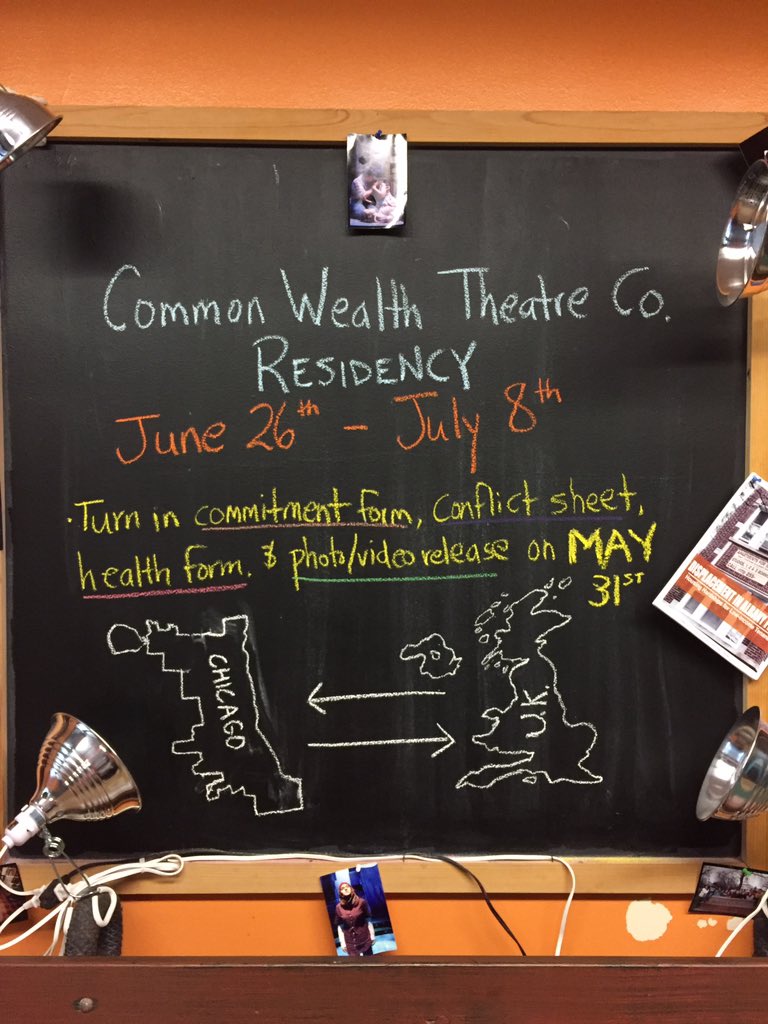 Common Wealth Theatre Co.
RESIDENCY
June 26th - July 8th
· Turn in commitment form, conflict sheet,
health form. & photo/video release on MAY
31ST
CHICAGO
U.K.
DISPLACEMENT IN ALBANY